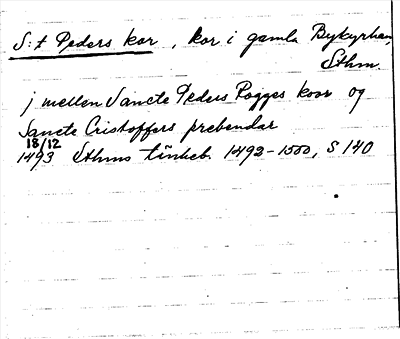 S:t Peders kor, kor i gamla Bykyrkan,
Sthm.
j mellen Sancte Peders Pogges koor og
Sancte Cristoffers prebendar
18/12
1493 Sthms tänkeb. 1492-1500, S 140